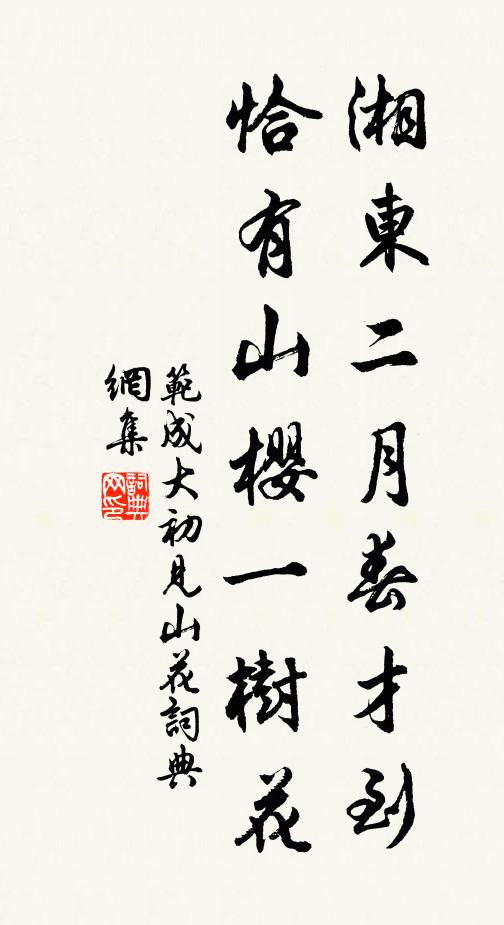 湘東二月春才到
恰有山櫻一樹花
範成大初見山花詞典
網集
詞典
網印